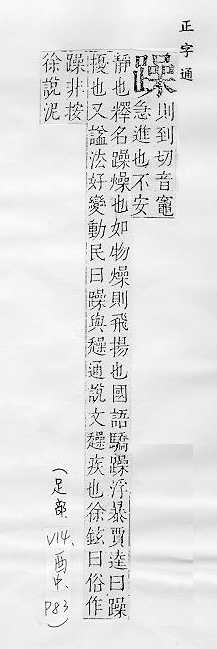 正字通
躁
則到切音竈
急進也不安
靜也釋名躁燥也如物燥則飛揚也國語驕躁浮暴賈逵曰躁
擾也又謚法好變動民曰躁與趮通說文趮疾也徐鉉曰俗作
躁非按
徐說泥
(足部、
V14、酉中、
P83)